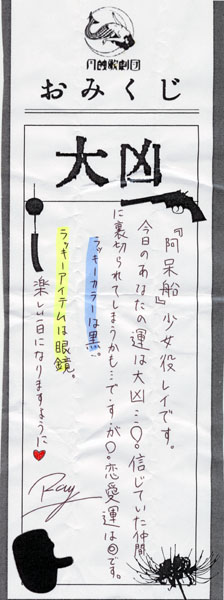 月蝕歌劇団
おみくじ
大凶
『阿呆船』少女役レイです。
今日のあなたの運は大凶…○。信じていた仲間
に裏切られてしまうかも…ですが○。恋愛運は◎です。
ラッキーカラーは黒。
ラッキーアイテムは眼鏡。
楽しい一日になりますように♥
Ray